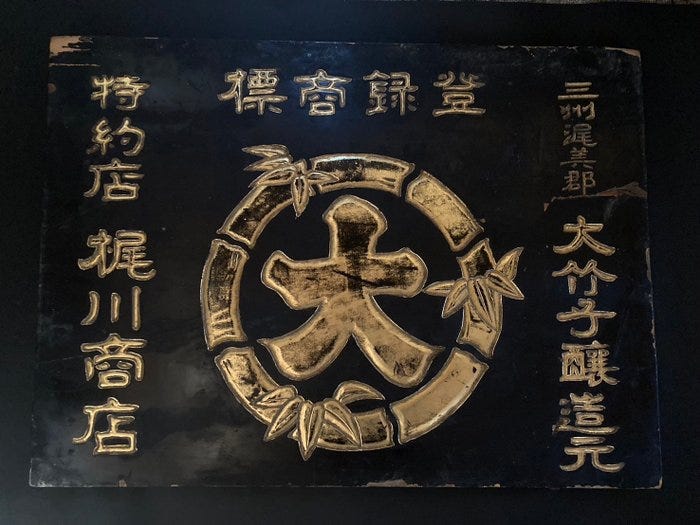 登録商標
三州渥美郡
大竹子釀造元
大
特約店
梶川商店